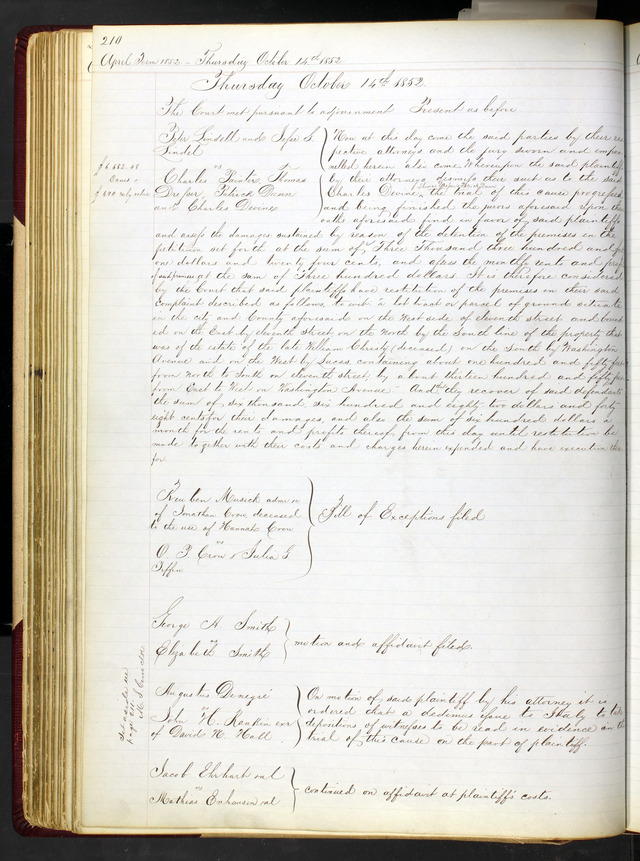 210
April Term 1852 - Thursday October 14th 1852
Thursday October 14th 1852
The Court met pursuant to adjournment Present as before
Peter Lindell and Jesse G.
Lindel
vs
Charles Hunter Thomas
Patrick Dunn
and Charles Devine
Now at this day come the said parties by their res
pective attorneys and the jury sworn and empan
nelled herein also come Whereupon the said plaintiffs
by their attorney dismiss their suit as to the said
Charles Devine, the trial of this cause progresses
and being finished the jurors aforesaid upon their
oaths aforesaid find in favor of said plaintiffs
and assess the damages sustained by reason of the detention of the premises in the
petition set forth at the sum of Three Thousand three hundred and
one dollars and twenty four cents, and assess the monthly rents and profits
of at the sum of Three hundred dollars. It is therefore considered
by the Court that said plaintiffs have restitution of the premises in their said
Complaint described as follows, to wit: A lot tract or parsel of ground situate
in the city and County aforesaid on the West side of eleventh street and bound
ed on the East by eleventh street on the North by the South line of the property that
was of the estate of the late William Christy (deceased) on the South by Washington
Avenue and on the West by Lucas, containing about one hundred and fifty feet
from North to South on eleventh street by about thirteen hundred and fifty feet
from East to West on Washington Avenue - And they recover of said defendants
the sum of six thousand six hundred and eighty two dollars and forty
eight cents for their damages and also the sum of six hundred dollars a
month for the rents and profits thereof from this day until restitution be
made together with their costs and charges herein expended and have execution there
for
Reuben Musick admr
of Jonathan Crow deceased
to the use of Hannah Crow
vs
O. P. Crow & Julia G
Bill of Exceptions filed
George A Smith
vs
Elizabeth Smith
motion and affidavit filed.
Augustus Denegré
vs
John H. Rankin exr
of David N. Hall
On motion of said plaintiff by his attorney it is
ordered that a dedimus issue to take
depositions of witnesses to be read in evidence on the
trial of this cause on the part of plaintiff.
Jacob Ehrhart et al
vs
Mathias et al
continued on affidavit at plaintiff's costs.